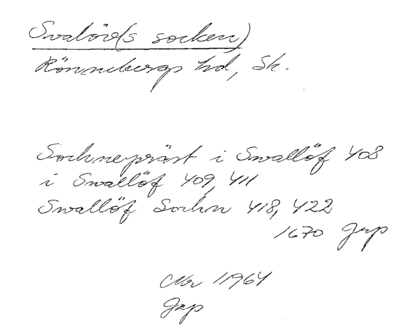 Svalöv(s socken)
Rönnebergs hd, Sk.
Sochnepräst i Swallöf 408
i Swallöf 409, 411
Swallöf Sochn 418, 422
1670 Jrp
11964
Jrp